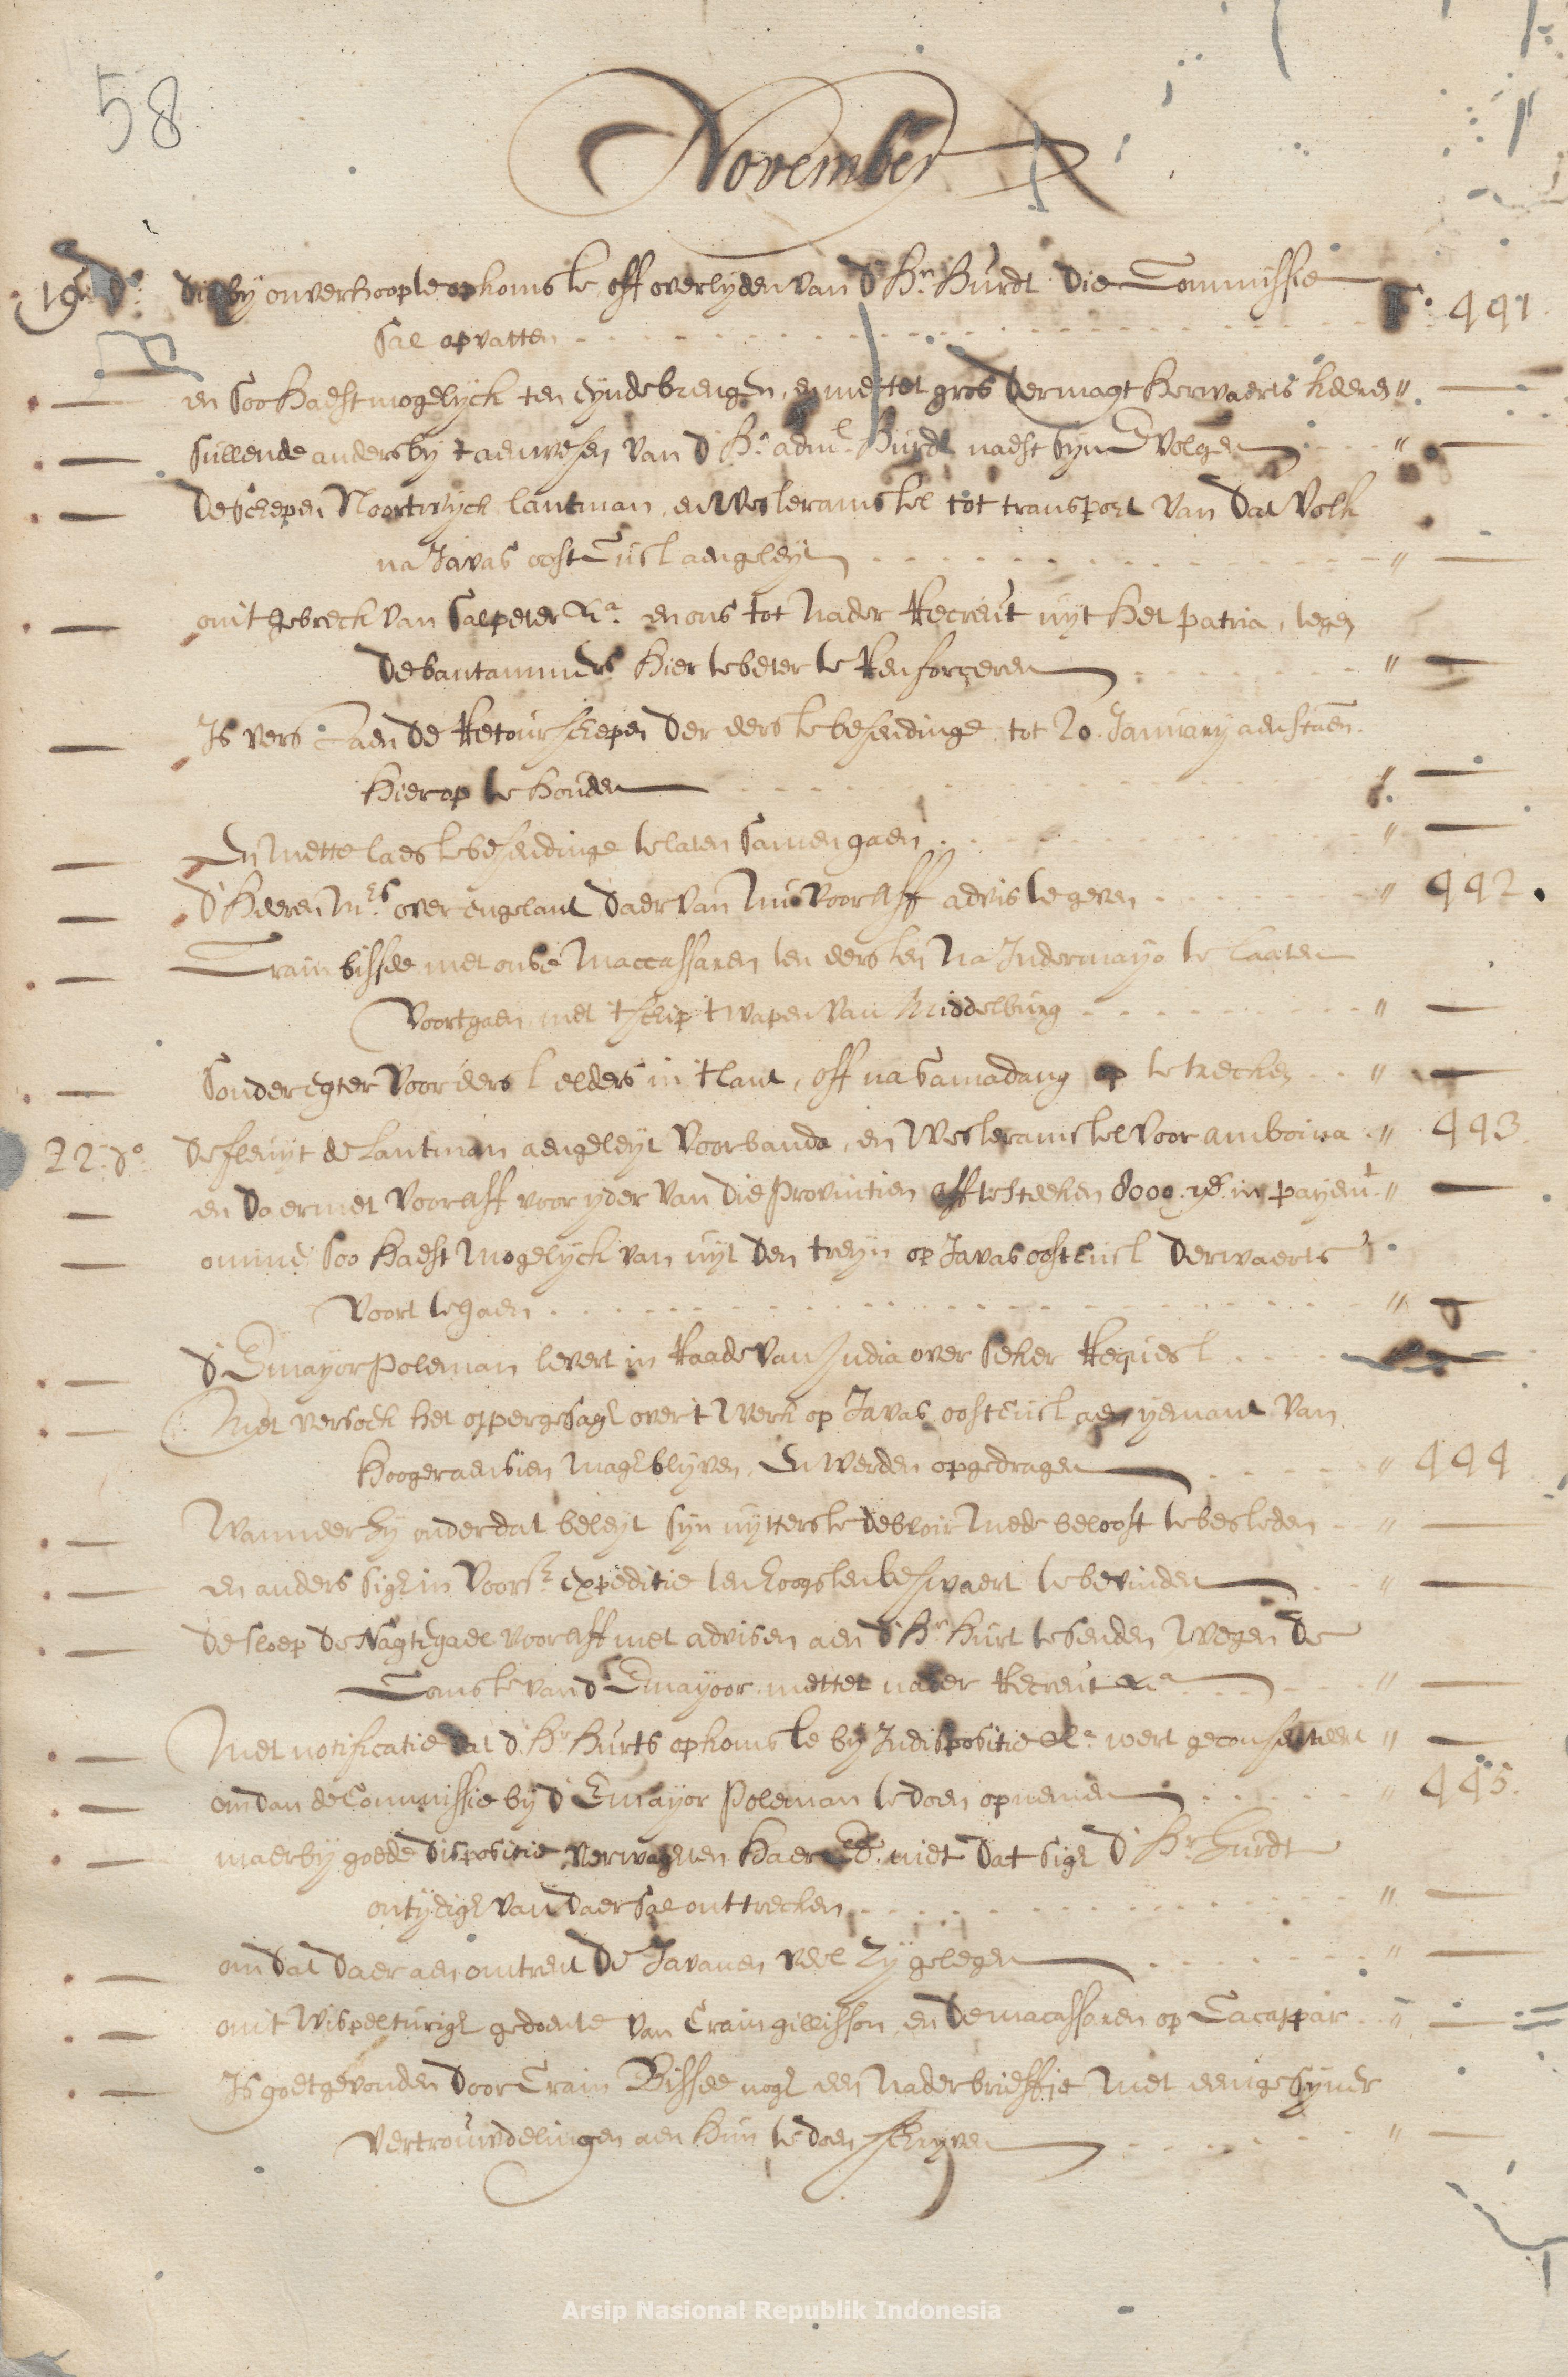 58
November
19n do. die by onverhoopte opkomste off overlyden van d' Hr. Hurdt die Commissie
sal opvatten fo. 441
en soo haest mogelyck ten eynde brengen, en mettet gros der magt herwaerts keeren "
sullende anders by 't aenwesen van d' Hr. adml. Hurdt naest syn E volgen "
de schepen Noortwyck, lantman, en Westeramstel tot transport van dat volk
na Javas oost Cust aengeleyt "
om 't gebreck van salpeter &a. en ons tot nader Recreut uyt het patria, tegen
de bantammers hier te beter te Renforceren "
Is vers aen de Retourschepen der eerste besendinge tot 20 January aenstaen.
hier op te houden "
En mette laeste besendinge te laten samen gaen "
d' Heeren Mrs. over engelant daer van nu vooraff advis te geven " 442
Crain bissee met onse Maccassaren ten eersten na Indermayo te laaten
voortgaen met 't schip 't wapen van Middelburg "
sonder egter voor eerst elders in 't lant, off na Samadang op te trecken "
22. do. de fluyt de Lantman aengeleyt voor banda, en Westeramstel voor amboina " 443
en daermet vooraff voor yder van die Provintien aff te steeken 8000. rds. in payemt. "
omme soo haest mogelyck van uyt den treyn op Javas oostcust derwaerts
voort te gaen "
d' E mayor Poleman levert in Raade van India over seker Request
Met versoek het oppergesagh over 't werk op Javas oostcust aen yemant van
hooger aensien magh blyven, en werden opgedragen " 444
Wanneer hy onder dat beleyt syn uytterste debvoir mede belooft te besteden "
en anders sigh in voorsz. expeditie ten hoogsten beswaert te bevinden "
de sloep de Nagtegael vooraff met advisen aen d' Hr. Hurt te senden wegen de
Comste van d' E mayoor mettet nader Recreut &a "
Met notificatie dat d' Hr. Hurts opkomste by Indispositie &a. wert geconsenteert "
om dan de Commissie by d' E mayor Poleman te doen opnemen " 445.
maer by goede dispositie verwagten haer Ed. niet dat sigh d' Hr. Hurdt
ontydigh van daer sal onttrecken "
om dat daer aen omtrent de Javanen veel zy gelegen "
om 't wispelturigh gedoente van Crain gillisson en de macassaren op Cacappar "
Is goetgevonden door Crain Bissee nogh een nader brieffje met eenige syner
vertrouwdelingen aen hun te doen schryven "
Arsip Nasional Republik Indonesia